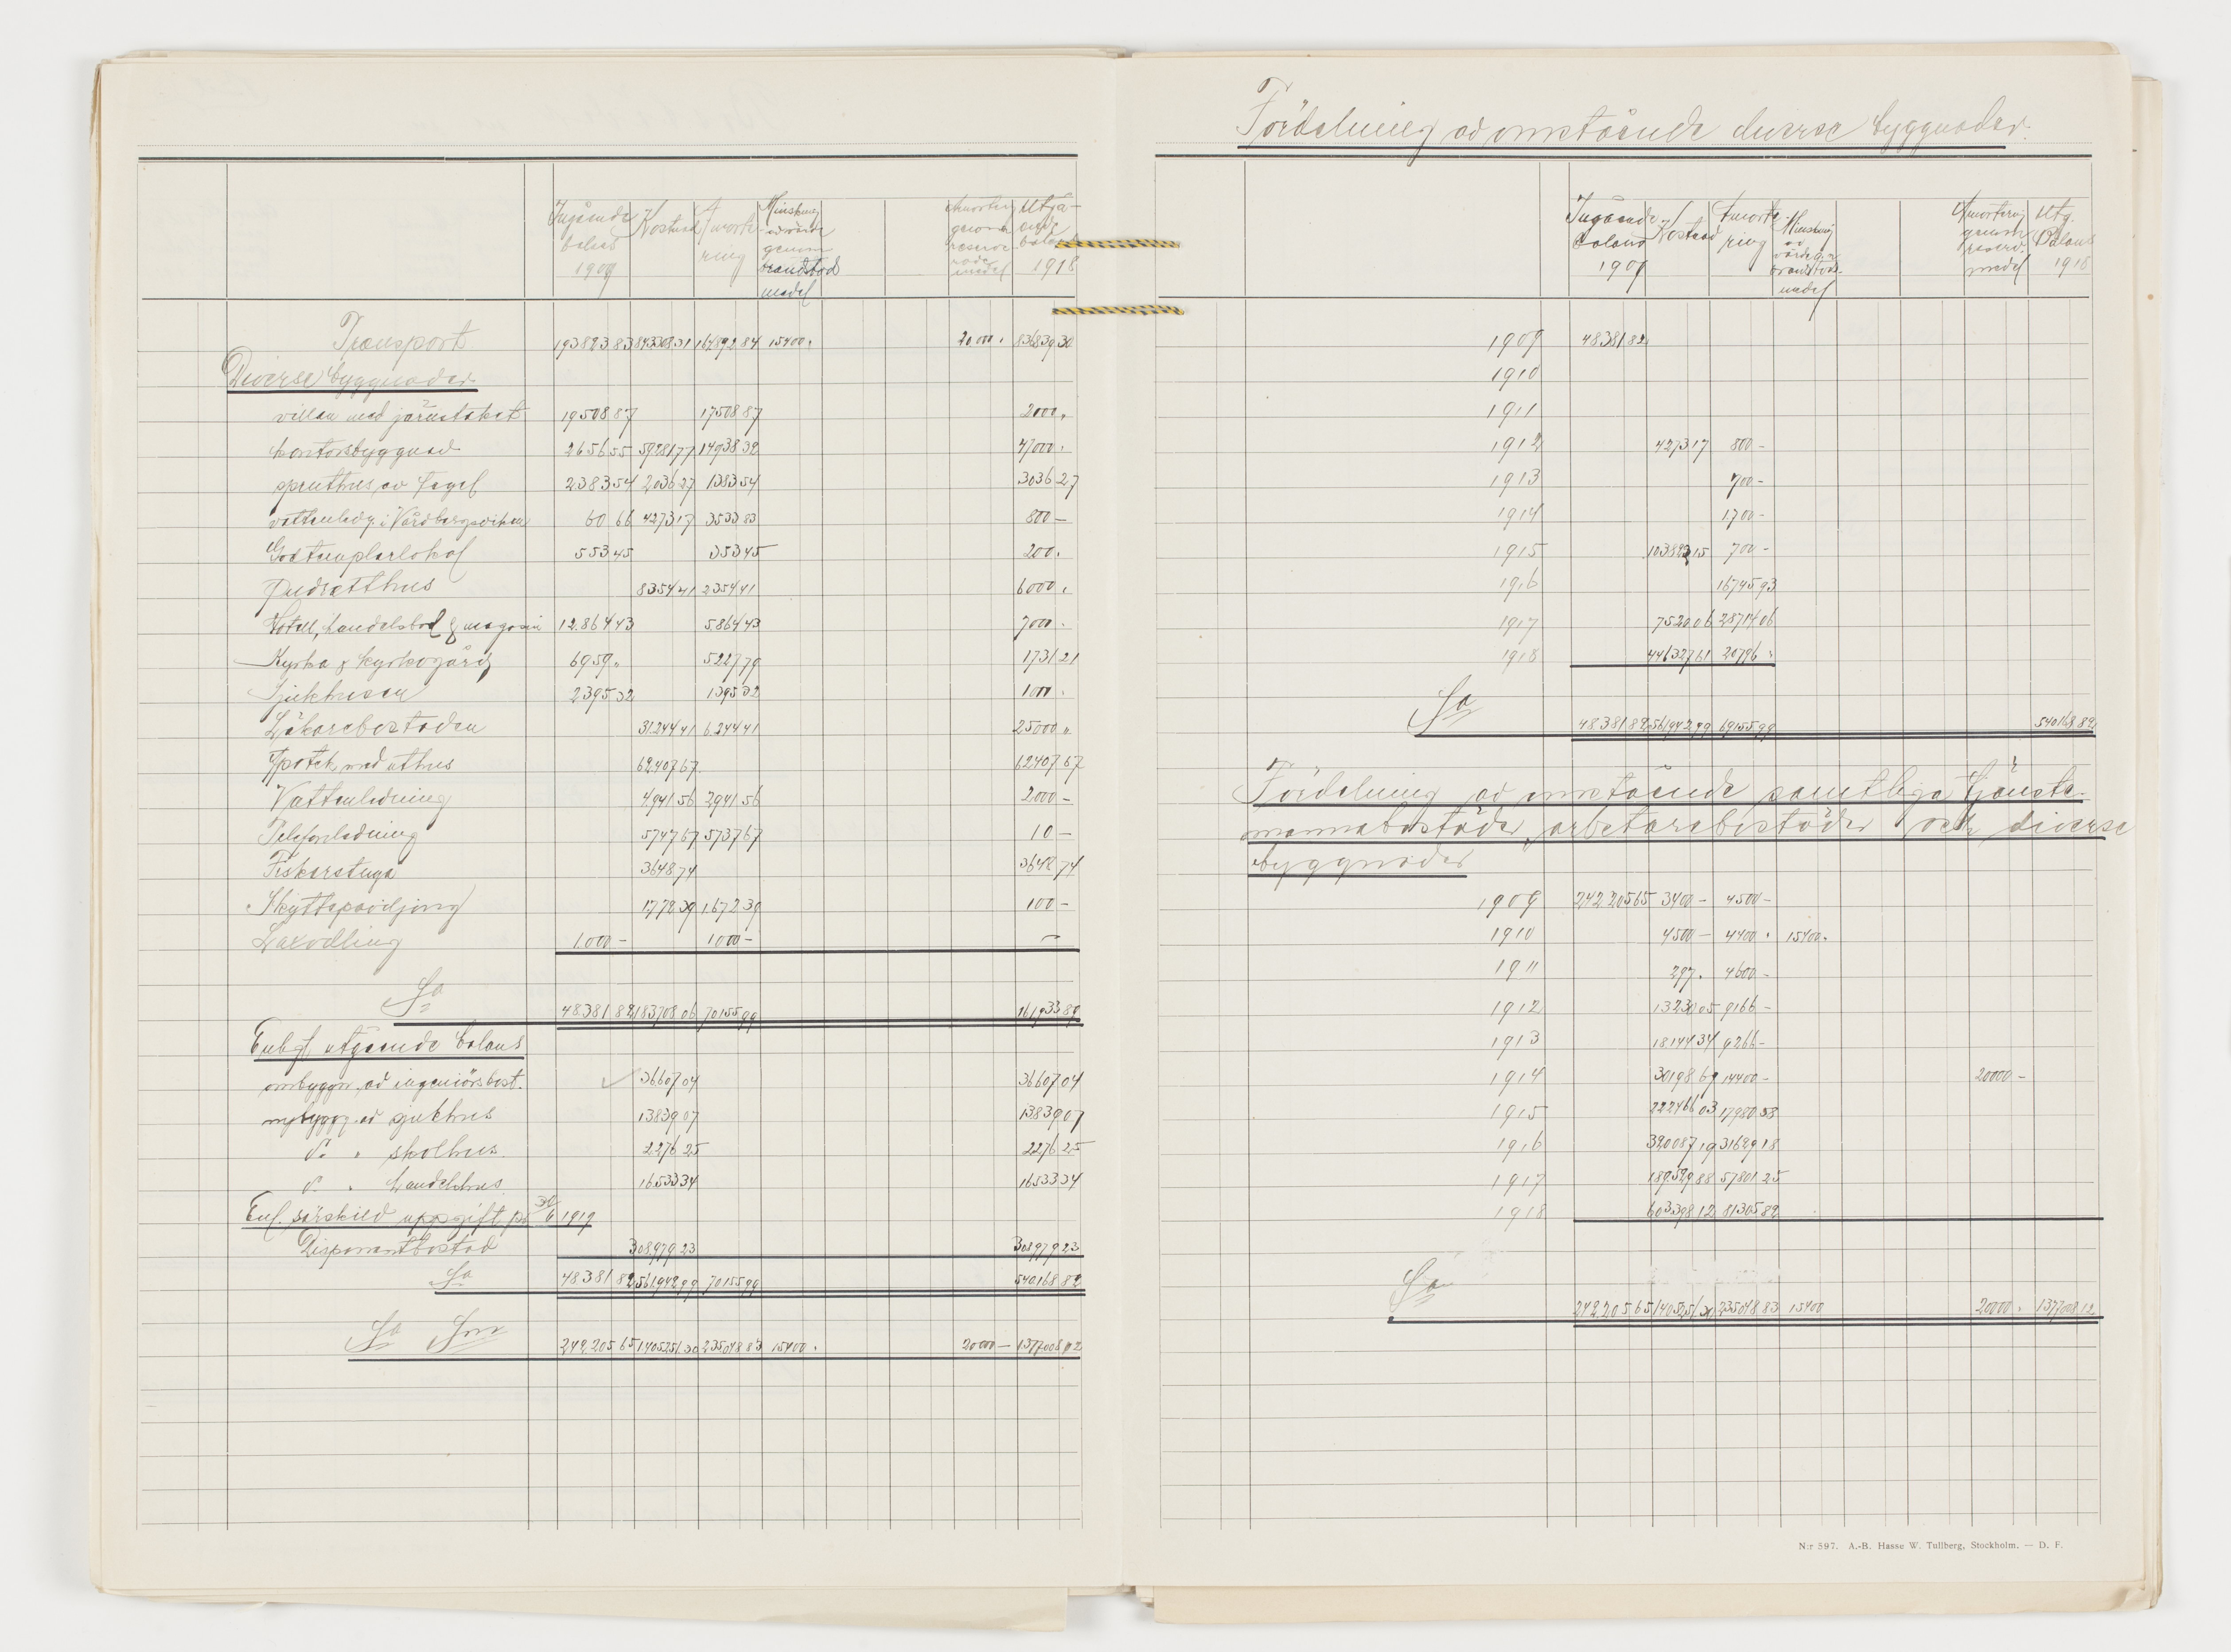 Ingående balans 1909 | Kostnad | Amortering | Minskning av värde genom brandstod medel | Amortering genom reserverade medel | Utgående balans 1918
Transport 193823 83 843308 31 164892 84 15400. 20.000. 836839 30
Diverse byggnader
villan med järnstaket 19508 87 17508 87 2000.
kontorsbyggnad 2656 55 59281 77 14938 32 47000.
spruthus av tegel 2383 54 2036 27 1383 54 3036 27
vattenledg. i Vårdbergsviken 60 66 4273 17 3533 83 800 —
Godtemplarlokal 553 45 353 45 200.
8354 41 2354 41 6000.
Hotell, handelsbod & magasin 12.864 43 5864 43 7000.
Kyrka & kyrkogård 6959. 5227 79 1731 21
Sjukhusen 2395 32 1395 32 1000.
Läkarebostaden 31.244 41 6.244 41 25000.
Apotek med uthus 62407 67 62407 67
Vattenledning 4941 56 2941 56 2000 —
Telefonledning 5747 67 5737 67 10 —
Fiskarstuga 3648 74 3648 74
Skyttepaviljong 1772 39 1672 39 100 —
Laxodling 1.000 — 1000 — —
Sa 48381 82 183708 06 70155 99 161933 89
Enligt utgående balans
ombyggn. av ingeniörsbost. 36607 04 36607 04
nybyggn. av sjukhus 13839 07 13839 07
d:o " skolhus 2276 25 2276 25
d:o " handelshus 16533 34 16533 34
Enl. särskild uppgift pr 30/6 1919
Disponentbostad 308979 23 308979 23
Sa 48381 82 561942 99 70155 99 540168 82
Sa Sm 242205 65 1405251 30 235048 83 15400. 20000 — 1377008 12
Fördelning av omstående diverse byggnader.
Ingående balans 1909 | Kostnad | Amortering | Minskning av värde gm brandstods medel | Amortering genom reserv. medel | Utg. Balans 1918
1909 48381 82
1910
1911
1912 4273 17 800 —
1913 700 —
1914 1700 —
1915 103822 15 700 —
1916 16745 93
1917 7520 06 28714 06
1918 446327 61 20796.
Sa 48381 82 561942 99 69155 99 540168 82
Fördelning av omstående samtliga tjänste-
mannabostäder, arbetarebostäder och diverse
byggnader
1909 242205 65 3400 — 4500 —
1910 4500 — 4400. 15400.
1911 297. 4600 —
1912 13230 05 9166 —
1913 18144 34 9266 —
1914 30198 69 14400 — 20000 —
1915 222466 03 17980 58
1916 320087 19 31629 18
1917 189529 88 57801 25
1918 603398 12 81305 82
Sa 242205 65 1405251 30 235048 83 15400 20000. 1377008 12
N:r 597. A.-B. Hasse W. Tullberg, Stockholm. — D. F.